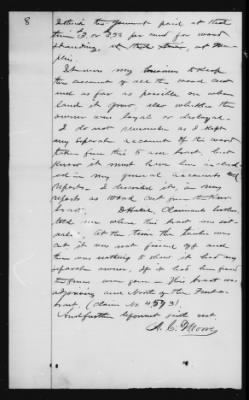 8
I think the Government paid at that
time $3. or $3.50 per cord for wood
standing, at that time, at Mem-
phis.
It was my business to keep
the account of all the wood cut
and as far as possible on whose
land it grew, also whether the
owner was loyal or disloyal.
I do not remember as I kept
any separate account of the wood
taken from this tract, but
know it must have been included
in my general accounts and
reports. I described it, in my
reports as wood cut from the
tract.
told me when this tract was cut
. At the time the timber was
cut it was not fenced off and
there was nothing to show it had any
separate owner, if it had been fenced
the fence was gone. This tract was
adjoining and North of the
tract. (Claim No 4593).
And further deponent saith not.
A. C. Moore